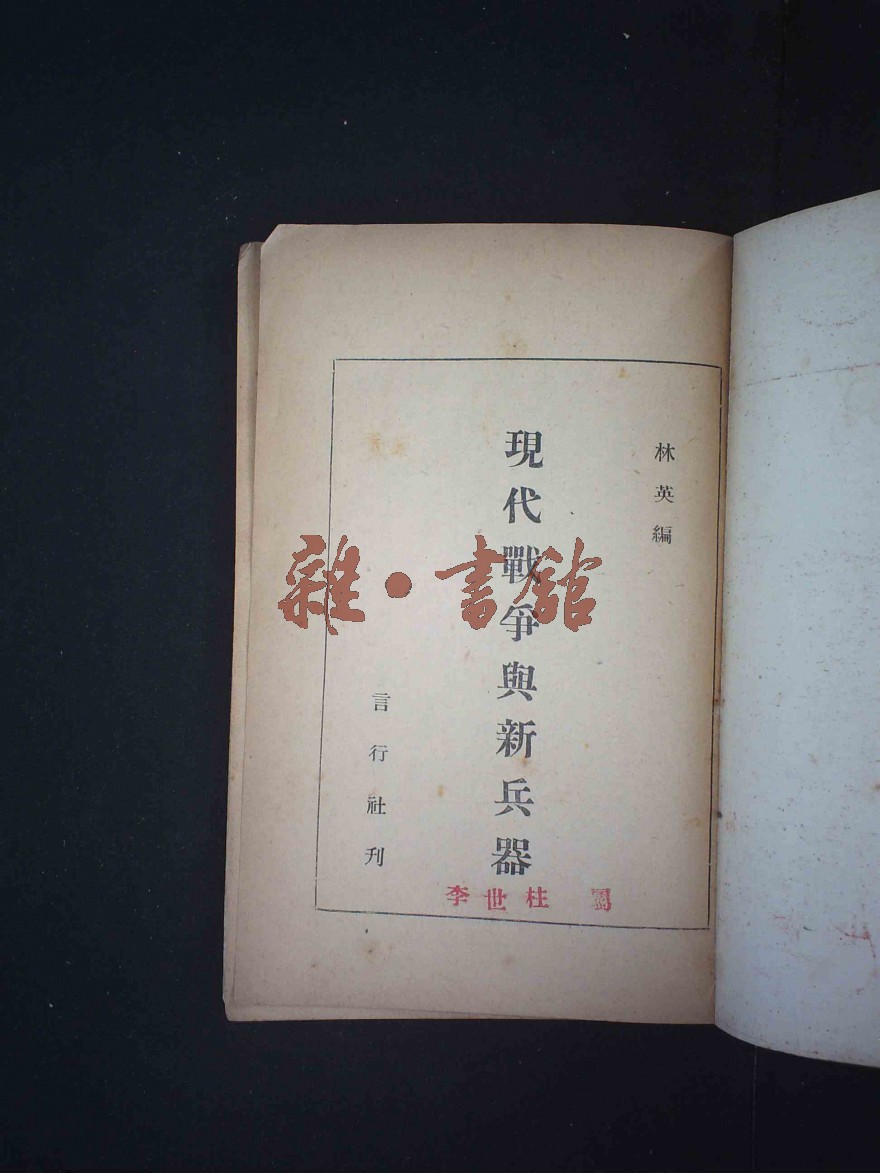 林英編
現代戰爭與新兵器
言行社刊
李世柱
雜·書館